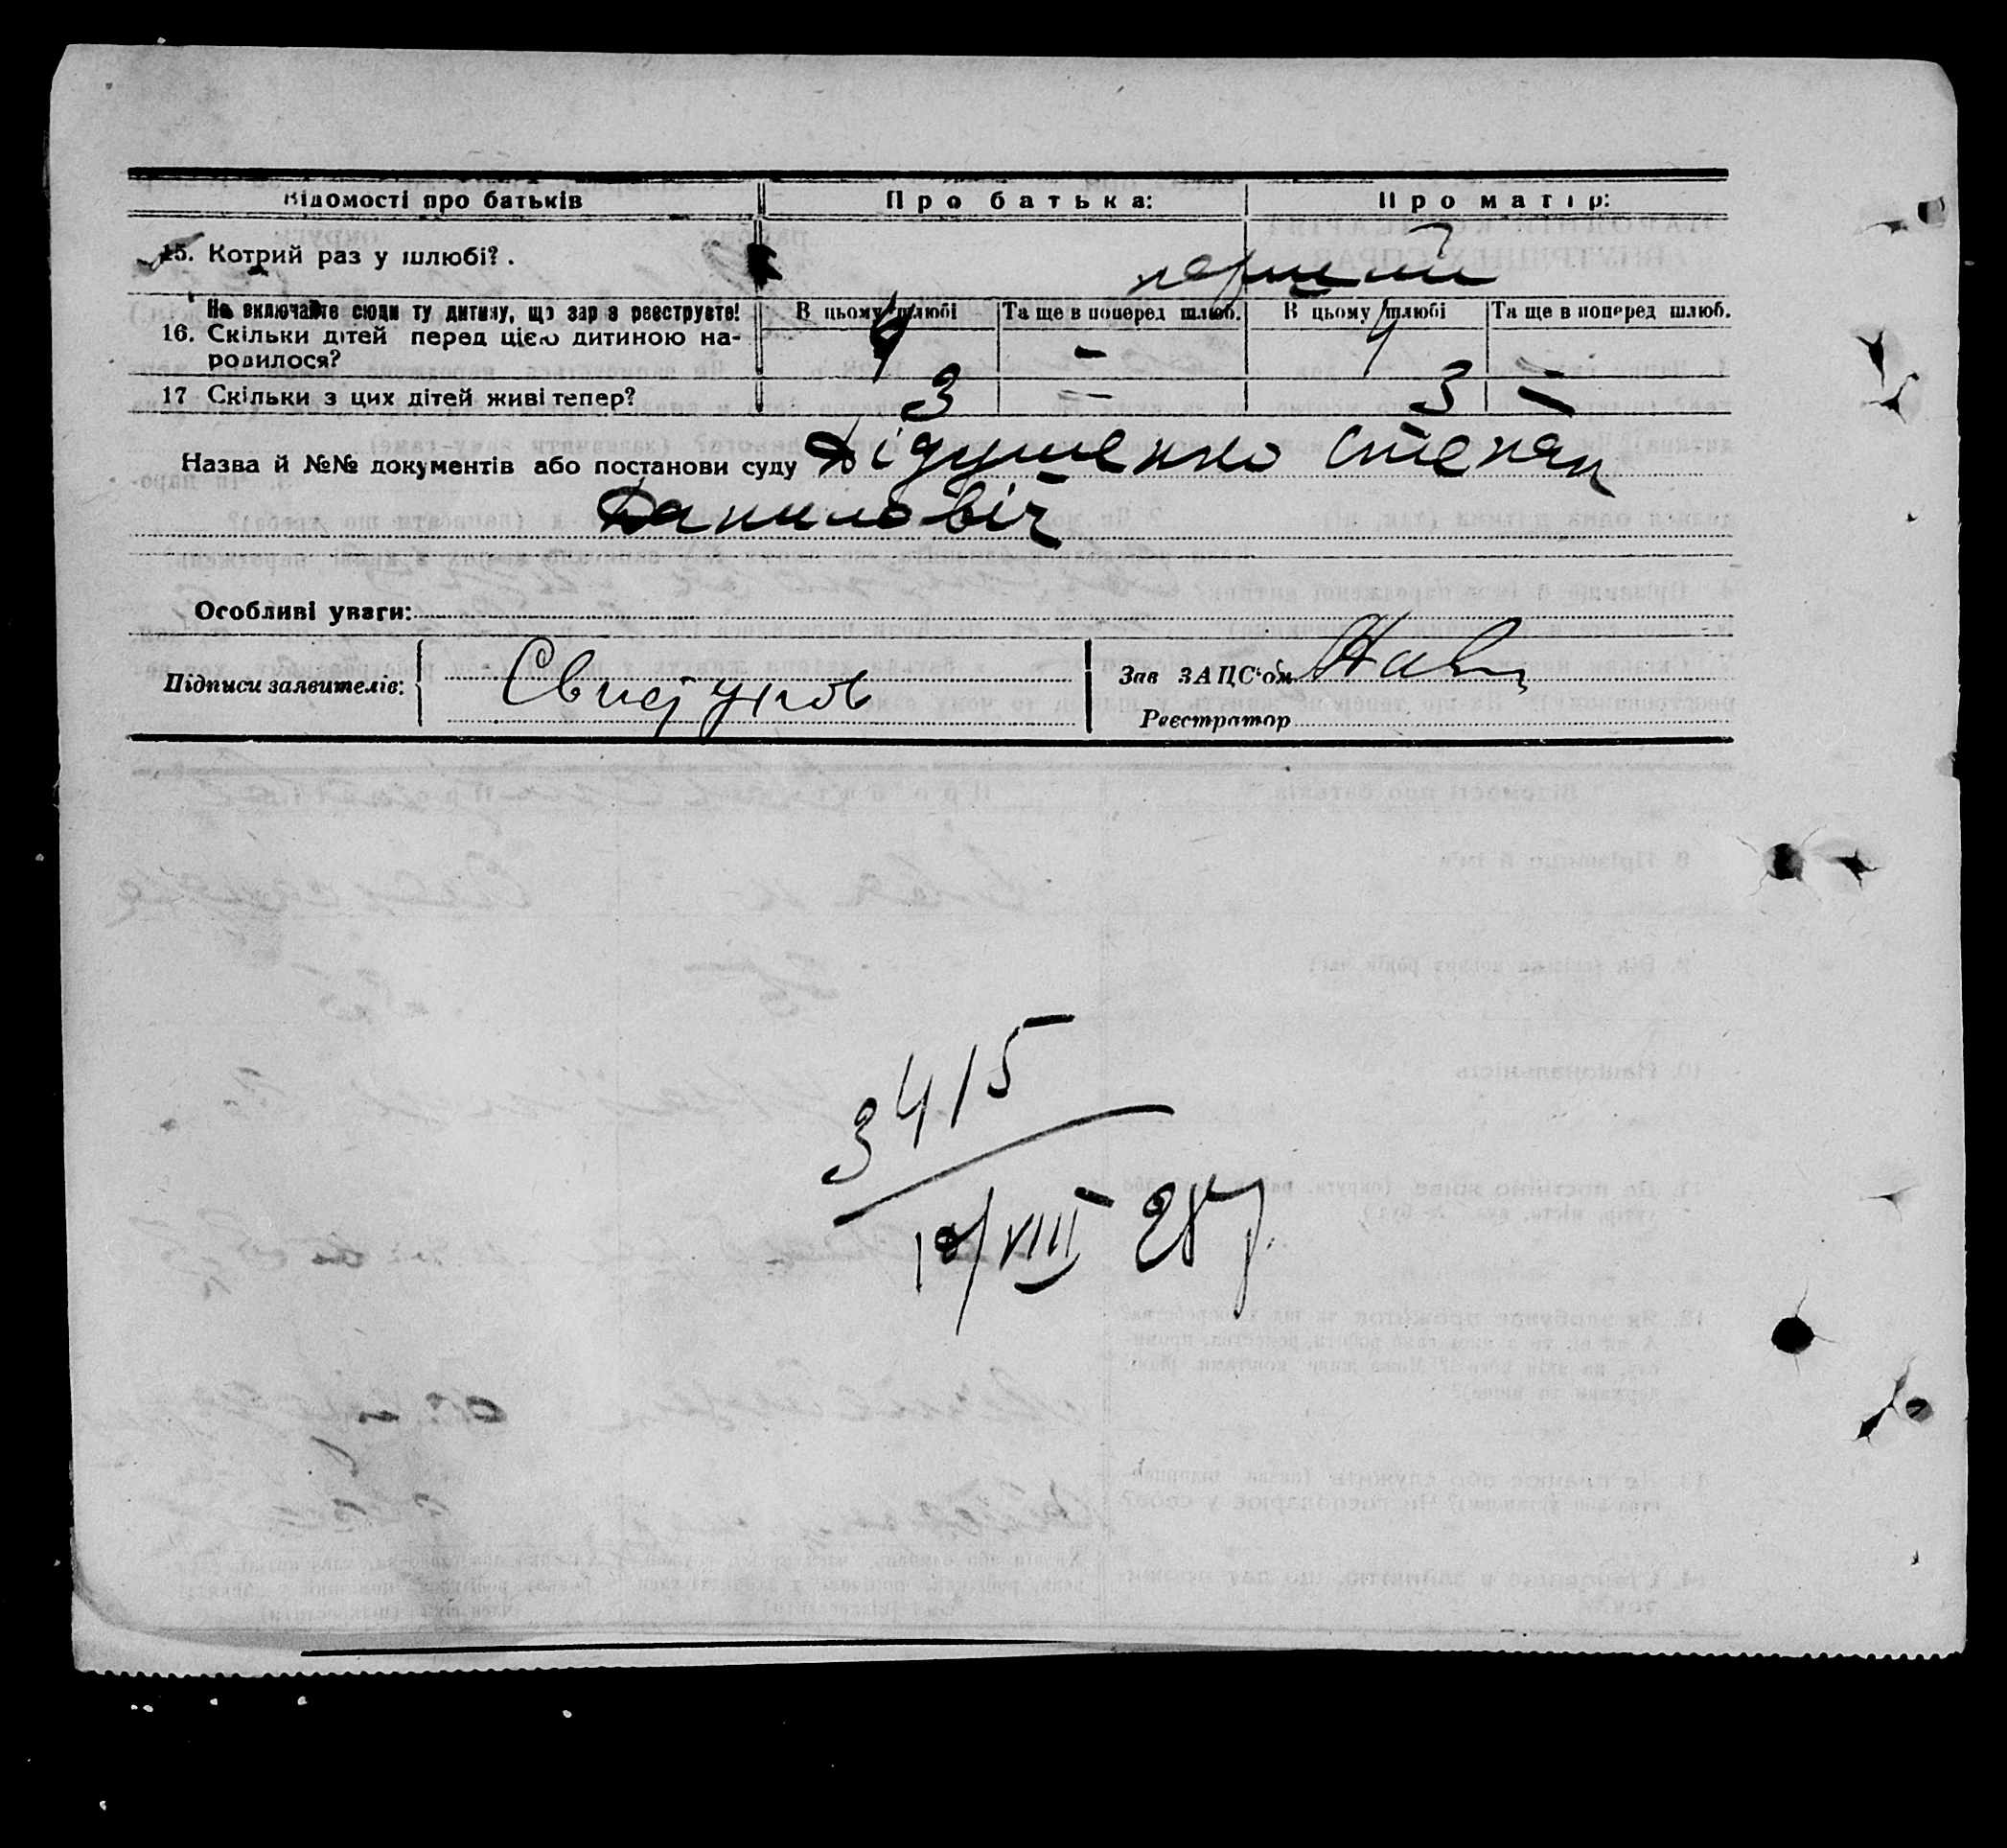 Відомості про батьків Про батька: Про матір:
15. Котрий раз у шлюбі? . перший
Не включайте сюди ту дитину, що зараз реєструєте! В цьому шлюбі Та ще в поперед шлюб. В цьому шлюбі Та ще в поперед шлюб.
16. Скільки дітей перед цією дитиною на- 4 - 4
родилося?
17 Скільки з цих дітей живі тепер? 3 - 3 -
Назва й №№ документів або постанови суду Дідушенко Степан
Данилович
Особливі уваги:
Підписи заявителів: Зав ЗАЦС'ом
Реєстратор
3415
/VIII - 28 р.